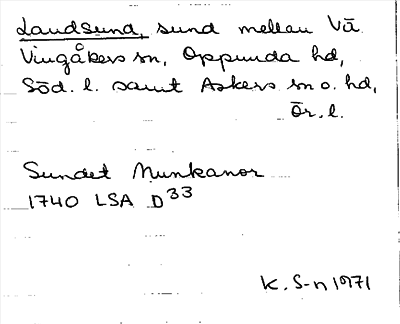 Landsund, sund mellan Vä
Vingåkers sn, Oppunda hd,
Söd. l. samt Askers sn o. hd,
Ör. l.
Sundet Munkanor
1740 LSA D33
K. S-n 1971